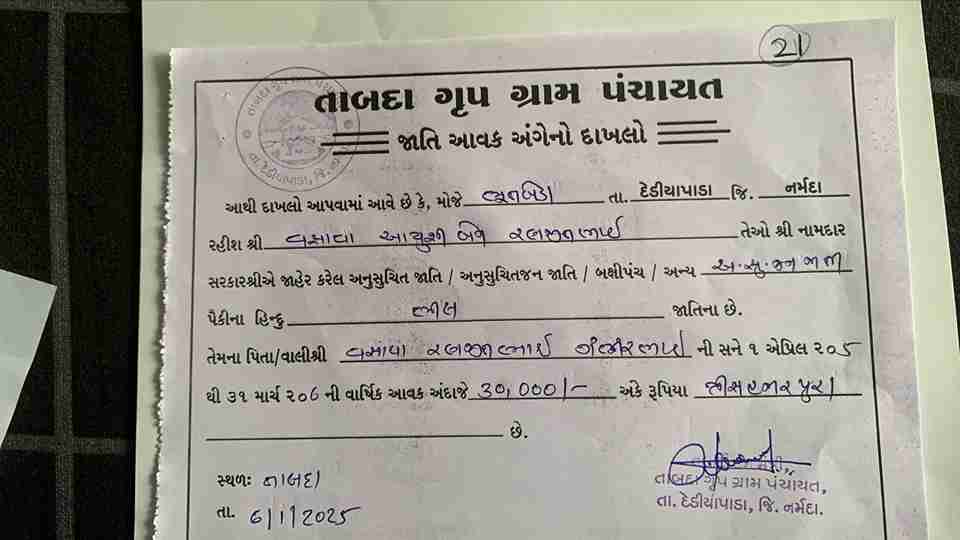 21
તાબદા ગૃપ ગ્રામ પંચાયત
જાતિ આવક અંગેનો દાખલો
આથી દાખલો આપવામાં આવે છે કે, મોજે તા. દેડીયાપાડા જિ. નર્મદા
રહીશ શ્રી વસાવા આયુશી બેન રણજીતભાઈ તેઓ શ્રી નામદાર
સરકારશ્રીએ જાહેર કરેલ અનુસુચિત જાતિ / અનુસુચિતજન જાતિ / બક્ષીપંચ / અન્ય અ.સુ.જન જાતી
પૈકીના હિન્દુ ભીલ જાતિના છે.
તેમના પિતા/વાલીશ્રી વસાવા રણજીતભાઈ ની સને ૧ એપ્રિલ ૨૦૫
થી ૩૧ માર્ચ ૨૦૬ ની વાર્ષિક આવક અંદાજે 30,000/- અંકે રૂપિયા ત્રીસહજાર પુરા
છે.
સ્થળ: તાબદા
તા. 6/1/2025
તાબદા ગૃપ ગ્રામ પંચાયત,
તા. દેડીયાપાડા, જિ. નર્મદા.